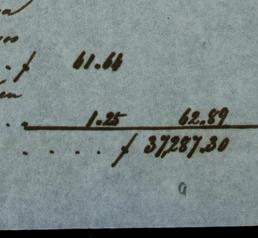 . f 61.64
. . 1.25 62.89
. . . . f 37,287.30
a